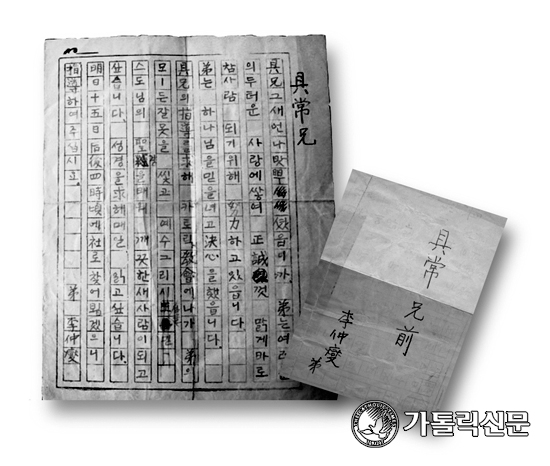 具常兄
具兄 그새 언나 弟는여러
의 두터운 사랑에 쌓여 正誠껏 맑게바로
참사람 되기위해 努力하고 있읍니다
弟는 하나님을 믿을려고 決心을 했읍니다.
具兄의 指導를 求해 카토릭 敎會에 나가 弟의
모ー든 잘못을 씻고 예수그리
스도님의 聖經을 배워 깨끗한 새사람이 되고
싶습니다. 성경을 求해 매일 읽고 싶습니다.
明日十五日后後四時頃에 社로 찾어뵙겠으니
指導하여 주십시요. 弟 李仲燮
具常 兄前
李仲燮 弟
가톨릭신문